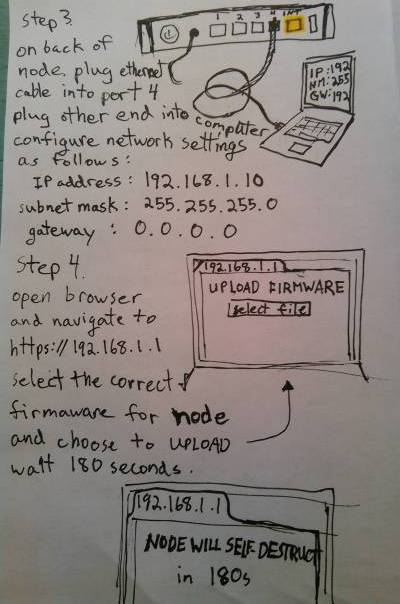 Step 3.
on back of
node, plug ethernet
cable into port 4
plug other end into computer
configure network settings
as follows:
IP address: 192.168.1.10
subnet mask: 255.255.255.0
gateway : 0.0.0.0
1 2 3 4 INT
IP:192
NM:255
GW:192
Step 4.
open browser
and navigate to
https://192.168.1.1
select the correct
firmaware for node
and choose to UPLOAD
wait 180 seconds.
192.168.1.1
UPLOAD FIRMWARE
select file
192.168.1.1
NODE WILL SELF DESTRUCT
in 180s